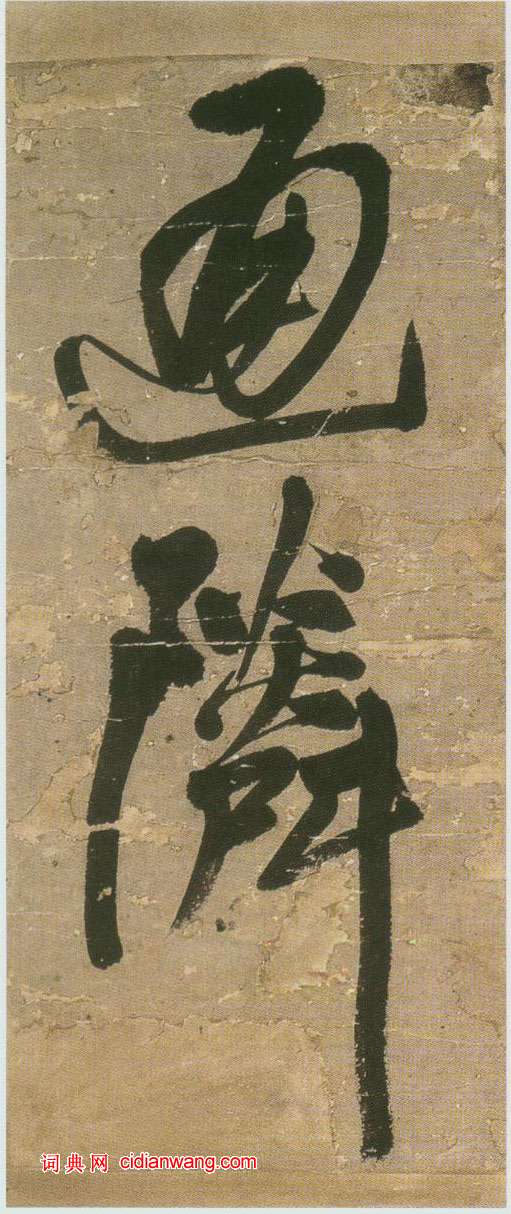 画
隣
词典网 cidianwang.com